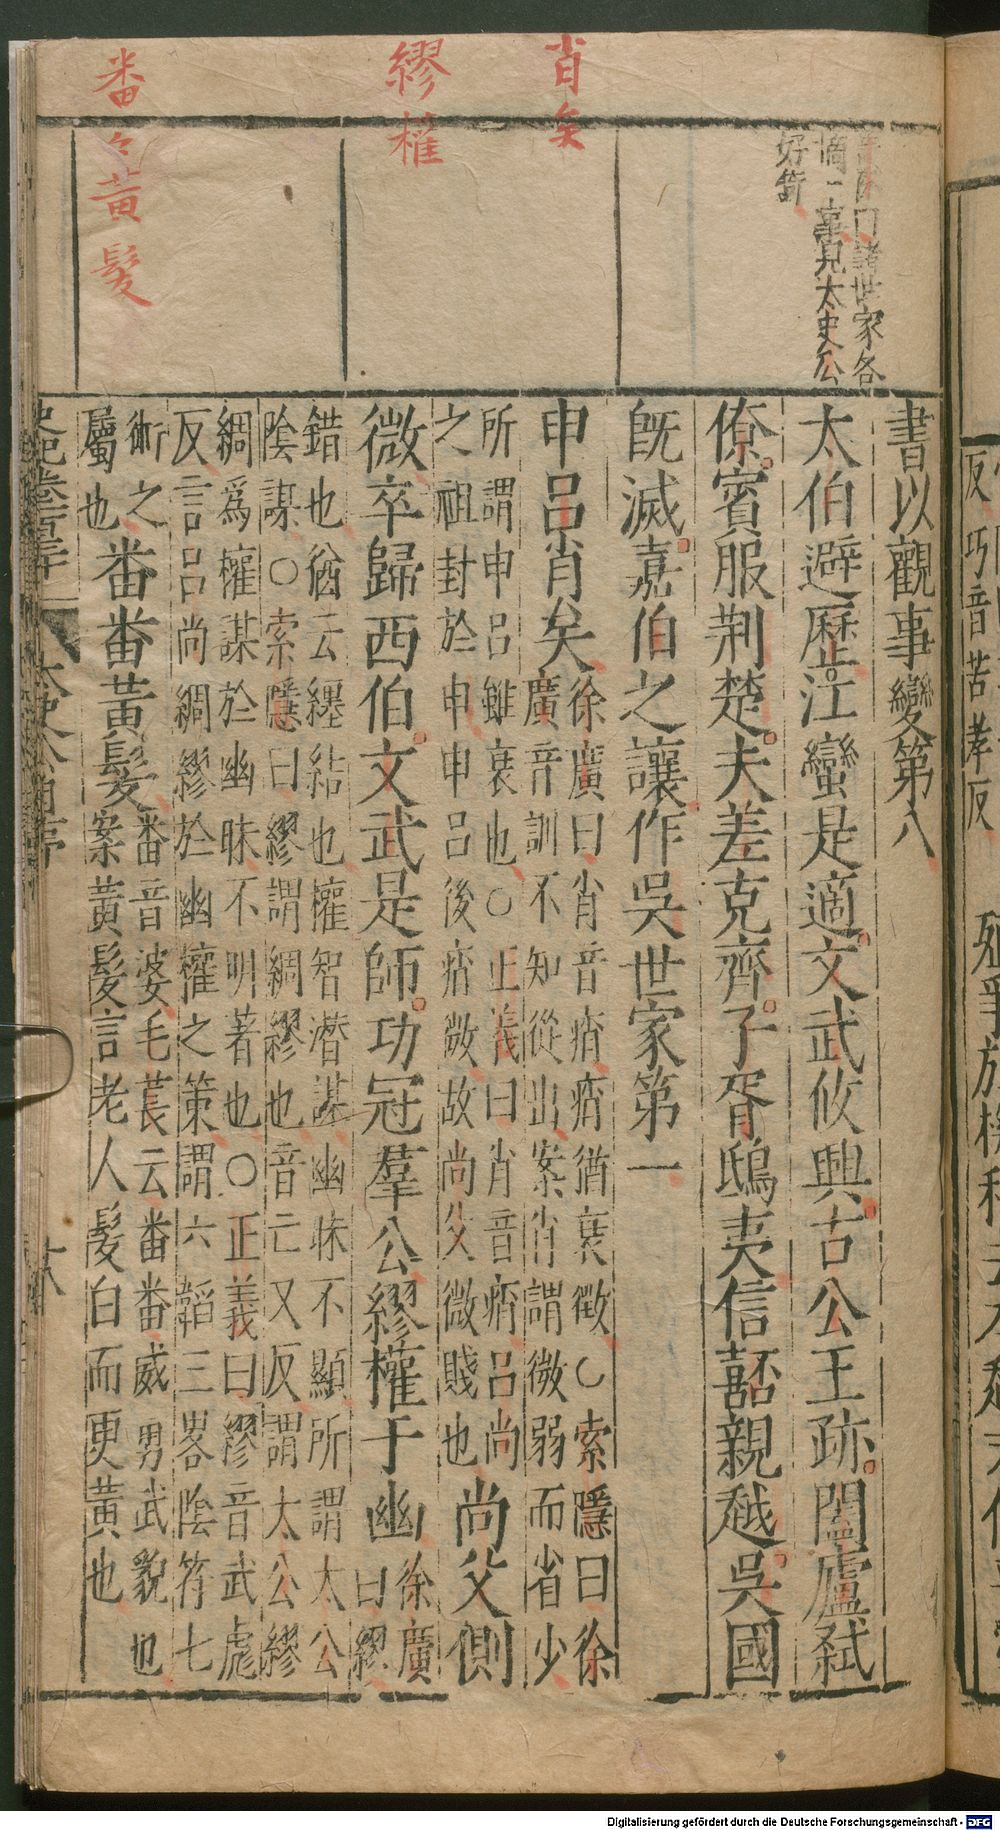 肖矣
繆權
番々黃髮
諸世家各
摘一事見太史公
好奇
書以觀事變第八
太伯避歷江蠻是適文武攸興古公王跡闔廬弑
僚賓服荆楚夫差克齊子胥鴟夷信嚭親越吳國
旣滅嘉伯之讓作吳世家第一
申呂肖矣徐廣曰肖音痟痟猶衰微○索隱曰徐
廣音訓不知從出案肖謂微弱而省少
所謂申呂雖衰也○正義曰肖音痟呂尚
之祖封於申申呂後痟微故尚父微賤也尚父側
微卒歸西伯文武是師功冠羣公繆權于幽徐廣
曰繆
錯也猶云纏結也權智潛謀幽昧不顯所謂太公
陰謀○索隱曰繆謂綢繆也音亡又反謂太公繆
綢爲權謀於幽昧不明著也○正義曰繆音武彪
反言呂尚綢繆於幽權之策謂六韜三畧陰符七
術之
屬也番番黃髮番音婆毛萇云番番威男武貌也
案黃髮言老人髮白而更黃也
反巧音苦孝反
Digitalisierung gefördert durch die Deutsche Forschungsgemeinschaft - DFG